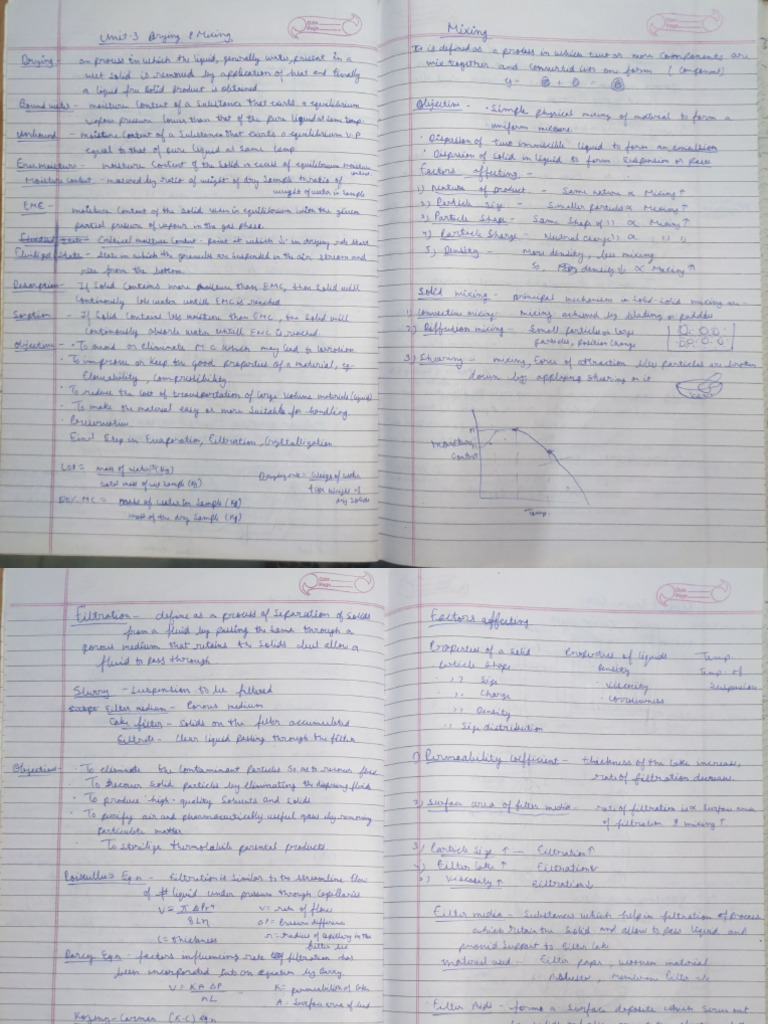 Unit-3 Drying & Mixing
Drying - an process in which the liquid, generally water, present in a
wet solid is removed by application of heat and finally
a liquid free solid product is obtained.
Bound water - moisture content of a substance that exerts a equilibrium
vapour pressure lower than that of the pure liquid at same temp.
Unbound - moisture content of a substance that exerts a equilibrium V.P
equal to that of pure liquid at same temp
moisture content of the solid in excess of equilibrium moisture
Moisture content - measured by ratio of weight of dry sample to ratio of
weight of water in sample
EMC - moisture content of the solid when in equilibrium with the given
partial pressure of vapour in the gas phase.
Critical moisture content - point at which in drying rate start
Fluidized state - state in which the granules are suspended in the air stream and
rise from the bottom.
Desorption - If solid contains more moisture than EMC, then solid will
continously lose water untill EMC is reached
Sorption - If solid contains less moisture than EMC, the solid will
continously absorb water untill EMC is reached.
Objective - • To avoid or eliminate M.C which may lead to corrosion
• To improve or keep the good properties of a material, eg-
flowability, compressibility
• To reduce the cost of transportation of large volume materials (liquid)
• To make the material easy or more suitable for handling
• Preservation
Final Step in Evaporation, Filtration, Crystallization
LOD = mass of water (Kg)
total mass of wet sample (Kg)
Drying rate = Weigh of water
time weight of dry solids
MC = mass of water in sample (Kg)
mass of the dry sample (Kg)
Mixing
It is defined as a process in which two or more components are
mix together and converted into one form (component)
Objective - • Simple physical mixing of material to form a
uniform mixture.
• Dispersion of two immiscible liquid to form an emulsion
• Dispersion of solid in liquid to form suspension or paste
Factors affecting -
1) Nature of product - Same nature ∝ Mixing ↑
2) Particle Size - Smaller particles ∝ Mixing ↑
3) Particle Shape - Same shape of " ∝ Mixing ↑
4) Particle Charge - Neutral charge " ∝ " " ↑
5) Density - More density, less mixing
So, density ↓ ∝ Mixing ↑
Solid mixing - principal mechanism in solid-solid mixing are -
1) Convective mixing: mixing achieved by blating or paddles
2) Diffusion mixing - Small particles or large
particles, position change
3) Shearing - mixing, force of attraction b/w particles are broken
down by applying shearing on it
Moisture
Content
Temp.
Filtration - define as a process of separation of solids
from a fluid by passing the same through a
porous medium that retains the solids but allow a
fluid to pass through
Slurry - Suspension to be filtered
Filter medium - Porous medium
Cake filter - Solids on the filter accumulated
Filtrate - Clear liquid passing through the filter
Objective - • To eliminate the contaminant particles so as to recover
• To recover solid particles by eliminating the dispersing fluid
• To produce high-quality solvents and solids
• To purify air and pharmaceutically useful gases by removing
particulate matter
• To sterilize thermolabile parental products
Poiseulle's Eqn - Filtration is similar to the streamline flow
of liquid under pressure through capillaries
V = π ΔPr⁴
8Lη
V = rate of flow
ΔP = Pressure difference
r = radius of capillary in the
filter bed
L = thickness
Darcy Eqn - factors influencing rate of filtration has
been incorporated into an equation by Darcy
V = KA ΔP
ηL
K = permeability of cake
A = Surface area of bed
Kozeny-Carman (K-C) Eqn
Factors affecting
Properties of a Solid
Particle Shape
" Size
" Charge
" Density
" Size distribution
Properties of liquids
Density
Viscosity
Corrosiveness
Temp.
Temp. of
suspension
1) Permeability coefficient - thickness of the cake increase,
rate of filtration decrease.
2) Surface area of filter media - rate of filtration is ∝ surface area
of filtration & mixing ↑
3) Particle Size ↑ - Filtration ↑
4) Filter Cake ↑ Filtration ↓
5) Viscosity ↑ Filtration ↓
Filter media - Substances which help in filtration of process
which retain the solid and allow to pass liquid and
provid support to filter cake
material used - Filter paper, woven material
Membrane filter etc
Filter Aids - forms a surface deposite which